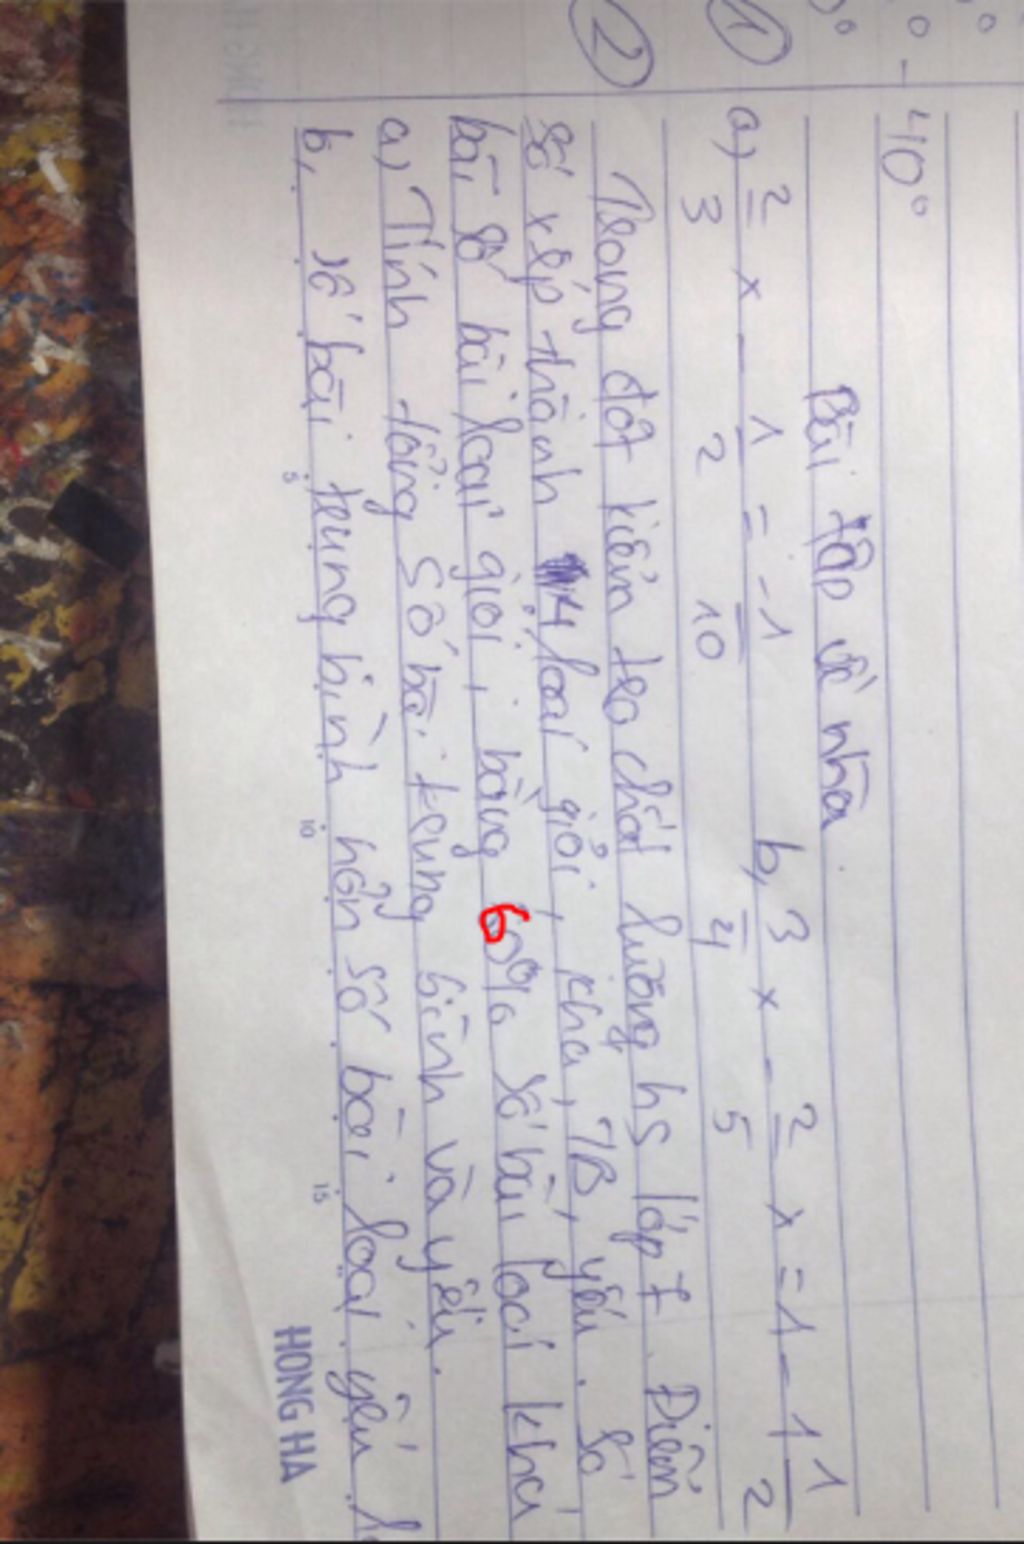 40°
Bài tập về nhà
① a) 2/3 x - 1/2 = -1/10 b, 3/4 x - 2/5 x = 1 - 1 1/2
② Trong đợt kiểm tra chất lượng hs lớp 7. Điểm
số xếp thành 4 loại giỏi, khá, TB, yếu. Số
bài số bài loại giỏi, bằng 60% số bài loại khá
a) Tính tổng số bài trung bình và yếu.
b, số bài trung bình hơn số bài loại yếu
5 10 15
HONG HA